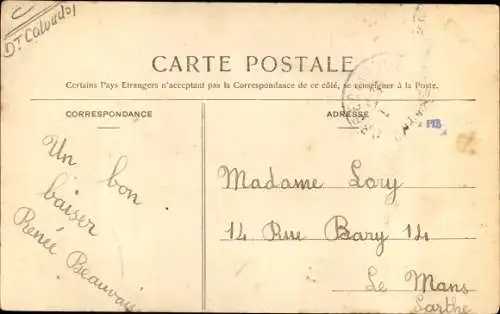 Dt Calvados
CARTE POSTALE
Certains Pays Etrangers n'acceptant pas la Correspondance de ce côté, se renseigner à la Poste.
CORRESPONDANCE
Un bon
baiser
Renée Beauvais
ADRESSE
Madame Lory
14 Rue Bary 14
Le Mans
Sarthe